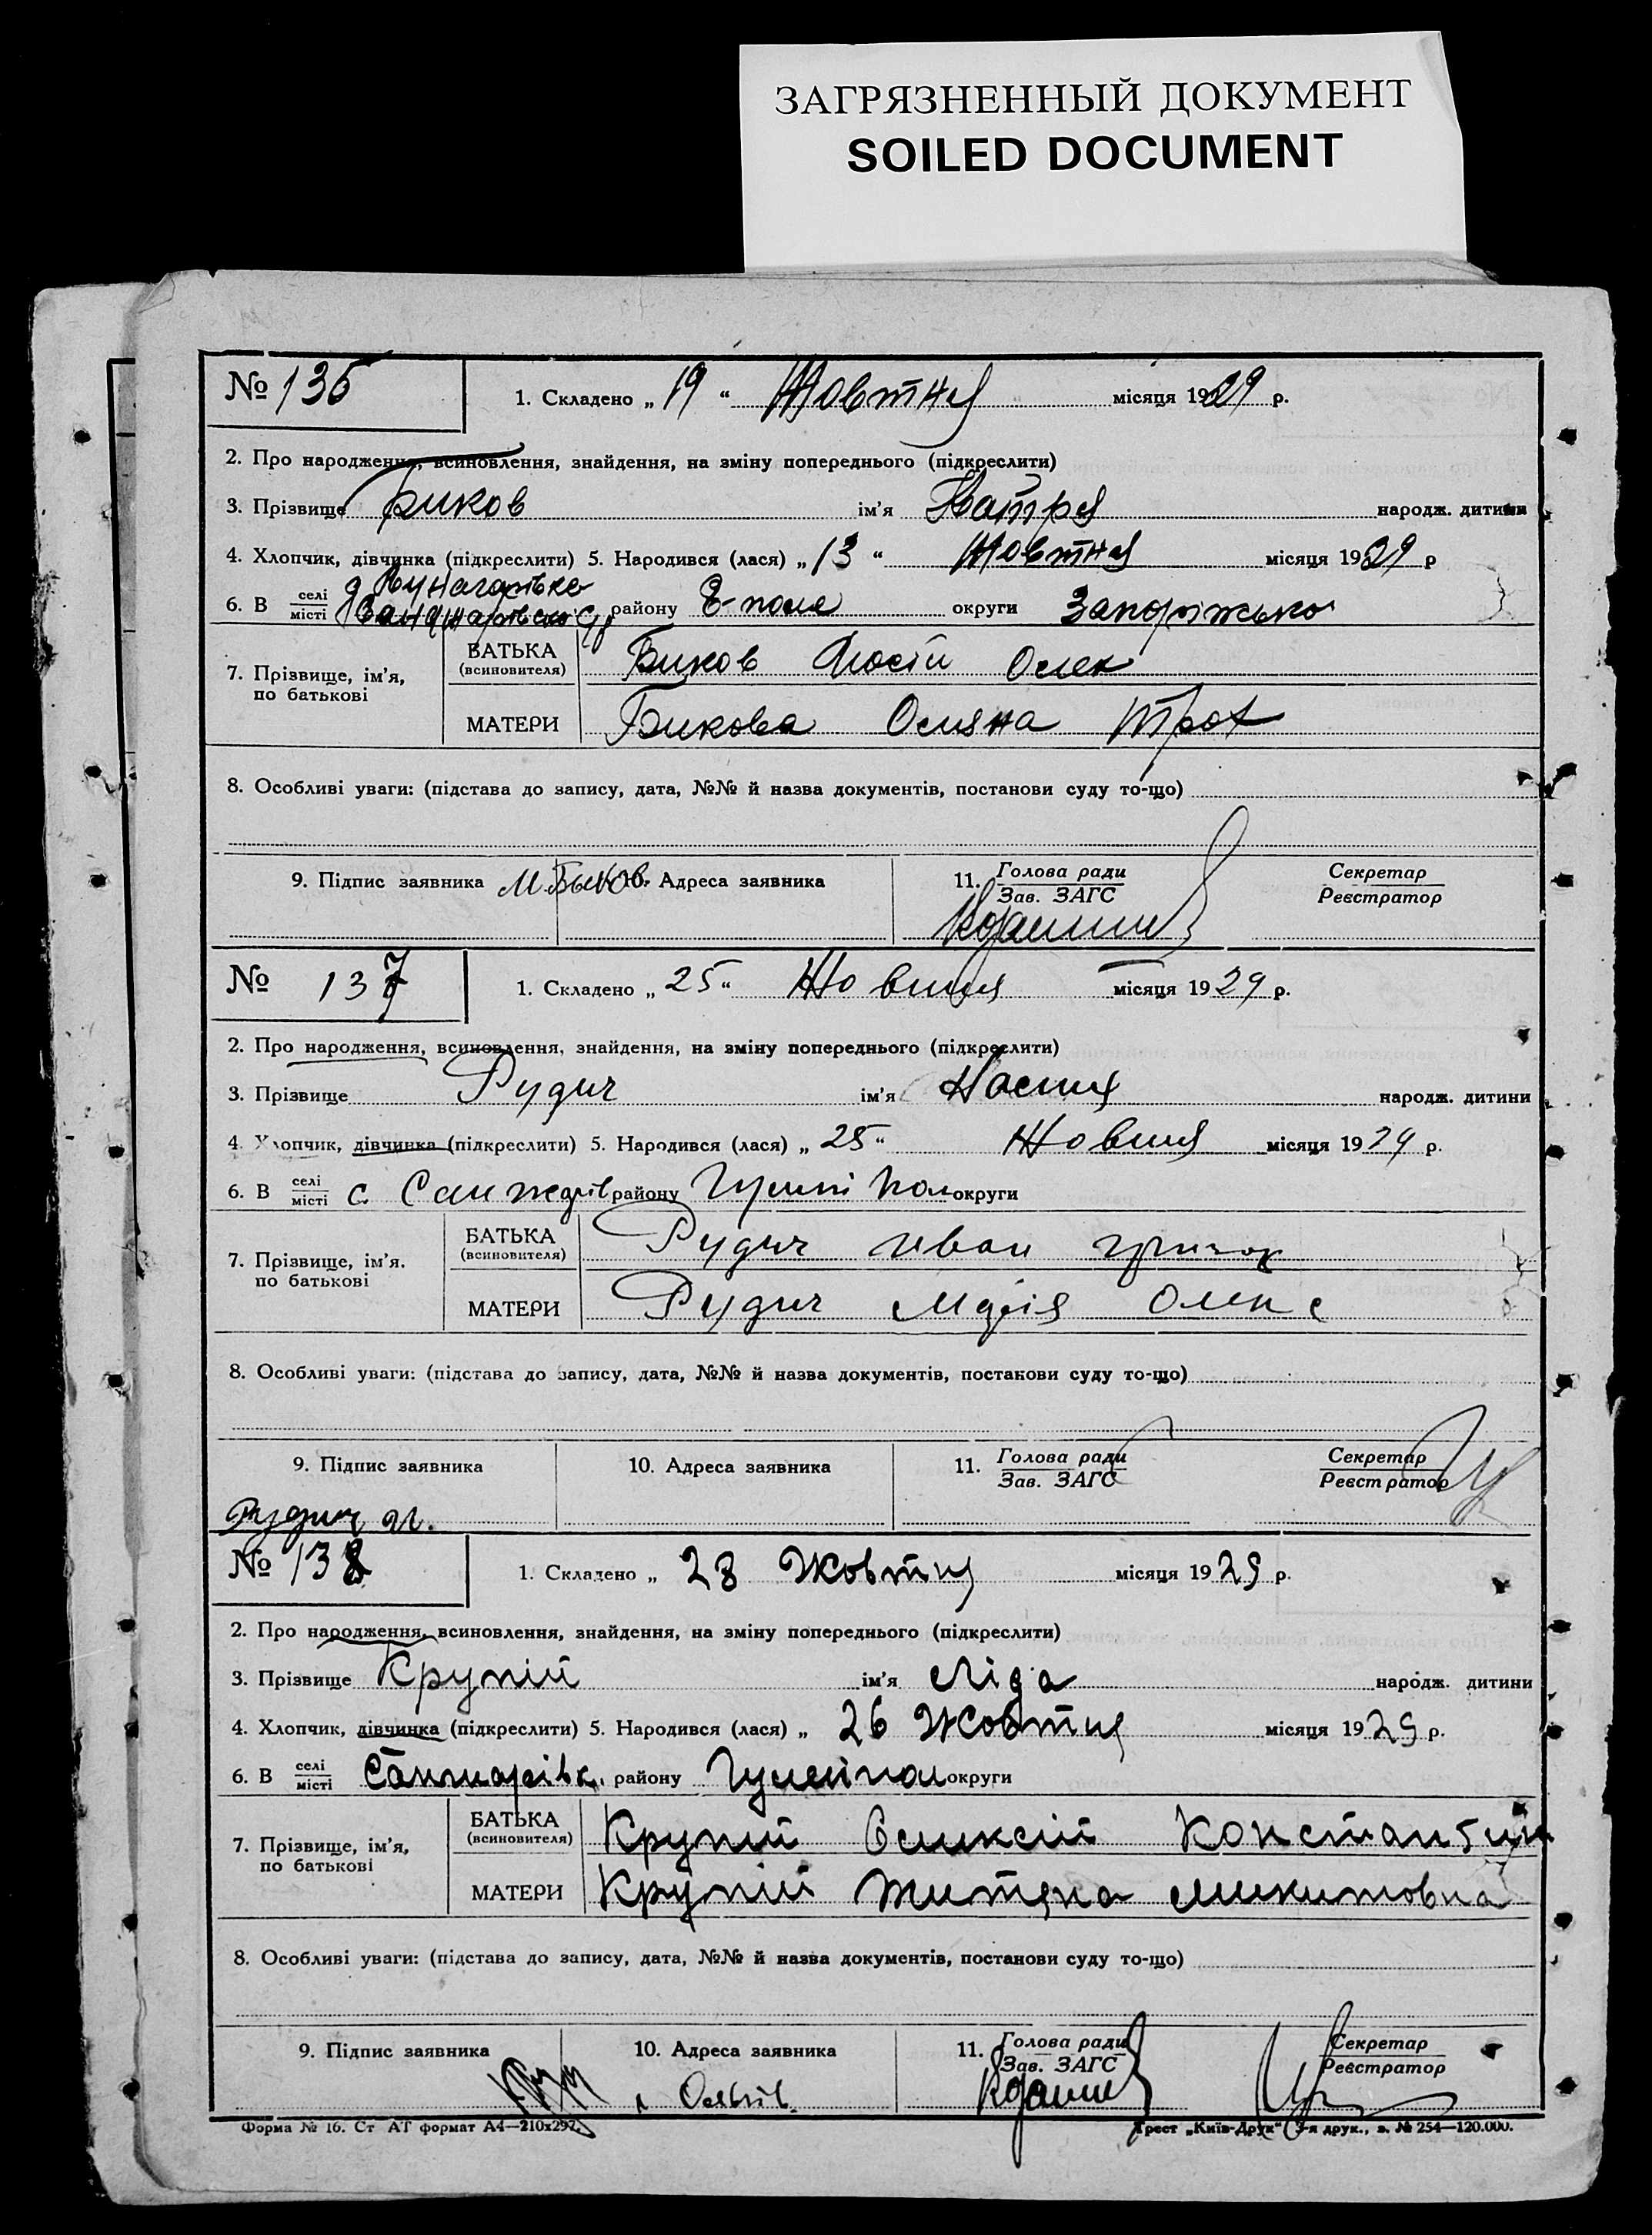 ЗАГРЯЗНЕННЫЙ ДОКУМЕНТ
SOILED DOCUMENT
№ 136
1. Складено „ 19 “ Жовтня місяця 1929 р.
2. Про народження, всиновлення, знайдення, на зміну попереднього (підкреслити)
3. Прізвище Биков ім'я народж. дитини
4. Хлопчик, дівчинка (підкреслити) 5. Народився (лася) „ 13 “ Жовтня місяця 1929 р
6. В селі місті району Г-поля округи Запоріжько
7. Прізвище, ім'я, по батькові
БАТЬКА (всиновителя) Биков Олек
МАТЕРИ Бикова Трох
8. Особливі уваги: (підстава до запису, дата, №№ й назва документів, постанови суду то-що)
9. Підпис заявника М.Быков. Адреса заявника 11. Голова ради Зав. ЗАГС Секретар Реєстратор
№ 137
1. Складено „ 25 “ Жовтня місяця 1929 р.
2. Про народження, всиновлення, знайдення, на зміну попереднього (підкреслити)
3. Прізвище Рудич ім'я Настя народж. дитини
4. Хлопчик, дівчинка (підкреслити) 5. Народився (лася) „ 25 “ Жовтня місяця 1929 р.
6. В селі місті с. Санжарів району Гуляй Пол округи
7. Прізвище, ім'я. по батькові
БАТЬКА (всиновителя) Рудич Иван
МАТЕРИ Рудич Марія Олекс
8. Особливі уваги: (підстава до запису, дата, №№ й назва документів, постанови суду то-що)
9. Підпис заявника 10. Адреса заявника 11. Голова ради Зав. ЗАГС Секретар Реєстратор
Рудич
№ 138
1. Складено „ 28 Жовтня місяця 1929 р.
2. Про народження, всиновлення, знайдення, на зміну попереднього (підкреслити)
3. Прізвище Крупій ім'я Ліда народж. дитини
4. Хлопчик, дівчинка (підкреслити) 5. Народився (лася) „ 26 Жовтня місяця 1929 р.
6. В селі місті Санжарівк. району Гуляйпол округи
7. Прізвище, ім'я, по батькові
БАТЬКА (всиновителя) Крупій Олексій Константин
МАТЕРИ Крупій Микитовна
8. Особливі уваги: (підстава до запису, дата, №№ й назва документів, постанови суду то-що)
9. Підпис заявника 10. Адреса заявника 11. Голова ради Зав. ЗАГС Секретар Реєстратор
Форма № 16. Ст АТ формат А4—210х297. Трест „Київ-Друк“ 3-я друк., з. № 254—120.000.